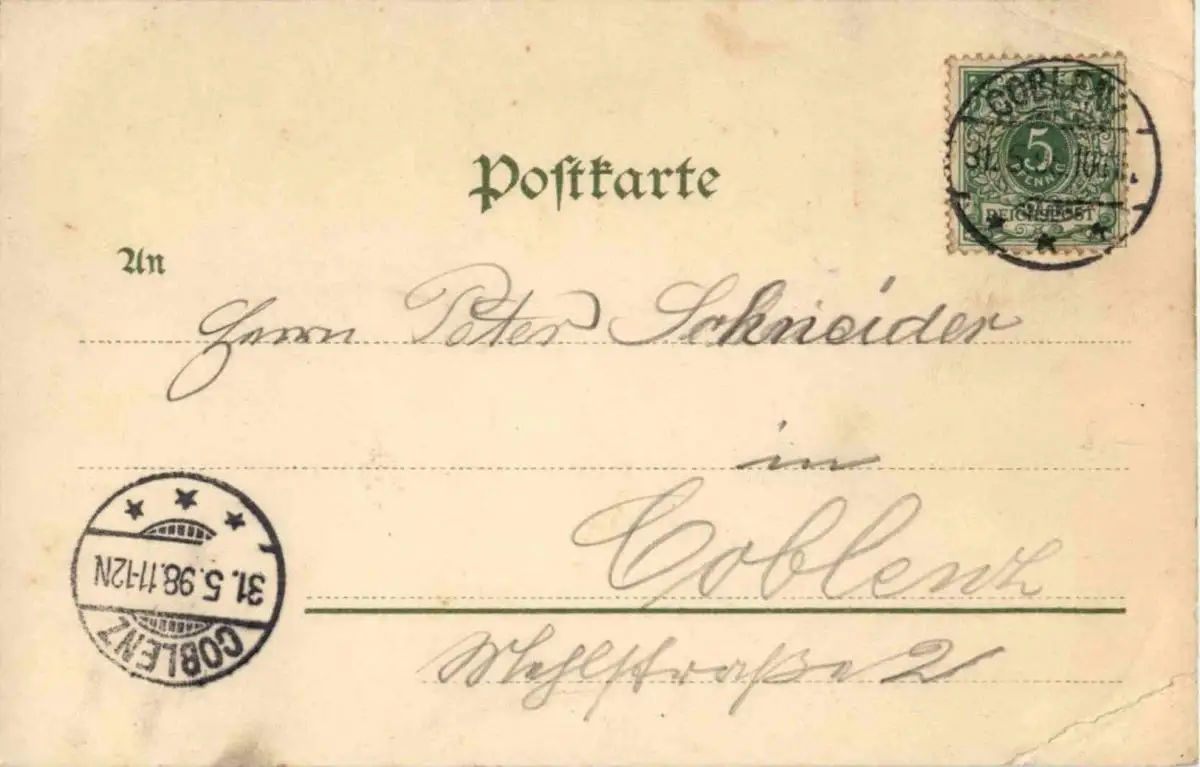 Postkarte
COBLENZ
31. 5. 98. 10-11
5
PFENNIG
REICHSPOST
An
Herrn Peter Schneider
in
Coblenz
Mehlstraße 2
31. 5. 98. 11-12N
COBLENZ